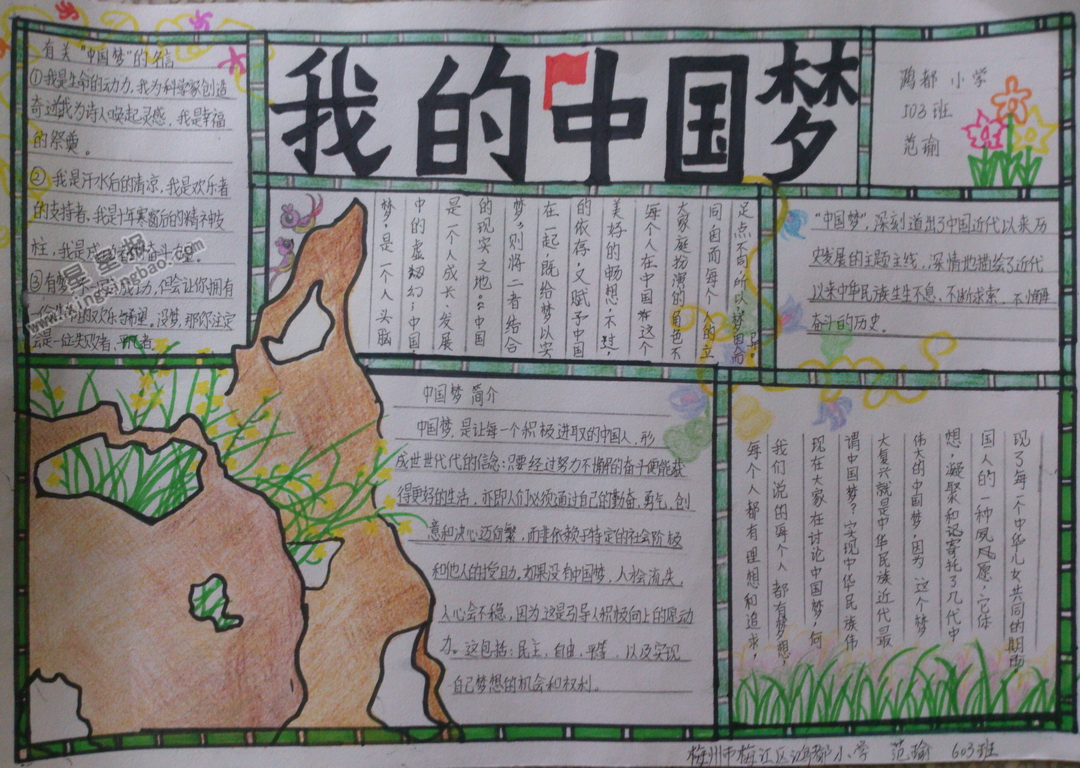 我的中国梦
鸿都小学
503班
范瑜
有关“中国梦”的名信
①我是生命的动力，我为科学家创造
奇迹我为诗人唤起灵感，我是幸福
的祭奠。
②我是汗水后的清凉，我是欢乐者
的支持者，我是十年寒窗后的精神支
柱，我是成
③有梦
会是一位失败者，平凡者
足点不同，所以
同，因而每个人的立
大家庭扮演的角色不
每个人在中国这个
美好的畅想，不过，
的依存，又赋予中国
在一起，既给梦以实
梦”，则将二者结合
的现实之地。“中国
是一个人成长、发展
中的虚拟幻；中国，
梦，是一个人头脑
“中国梦”，深刻道出了中国近代以来历
史发展的主题主线，深情地描绘了近代
以来中华民族生生不息、不断求索、不懈
奋斗的历史。
中国梦简介
中国梦，是让每一个积极进取的中国人，形
成世世代代的信念：只要经过努力不懈的奋斗便能获
得更好的生活，亦即人们必须通过自己的勤奋、勇气、创
意和决心迈向繁，而非依赖于特定的社会阶级
和他人的援助。如果没有中国梦，人会流失，
人心会不稳，因为这是引导人积极向上的原动
力。这包括：民主，自由，平等，以及实现
自己梦想的机会和权利。
现了每一个中华儿女共同的期盼
国人的一种夙愿，它体
想，凝聚和记寄托了几代中
伟大的中国梦，因为这个梦
大复兴就是中华民族近代最
谓中国梦？实现中华民族伟
现在大家在讨论中国梦，何
我们说的每个人都有梦想，
每个人都有理想和追求，
梅州市梅江区鸿都小学 范瑜 603班
星星报
www.xingxingbao.com